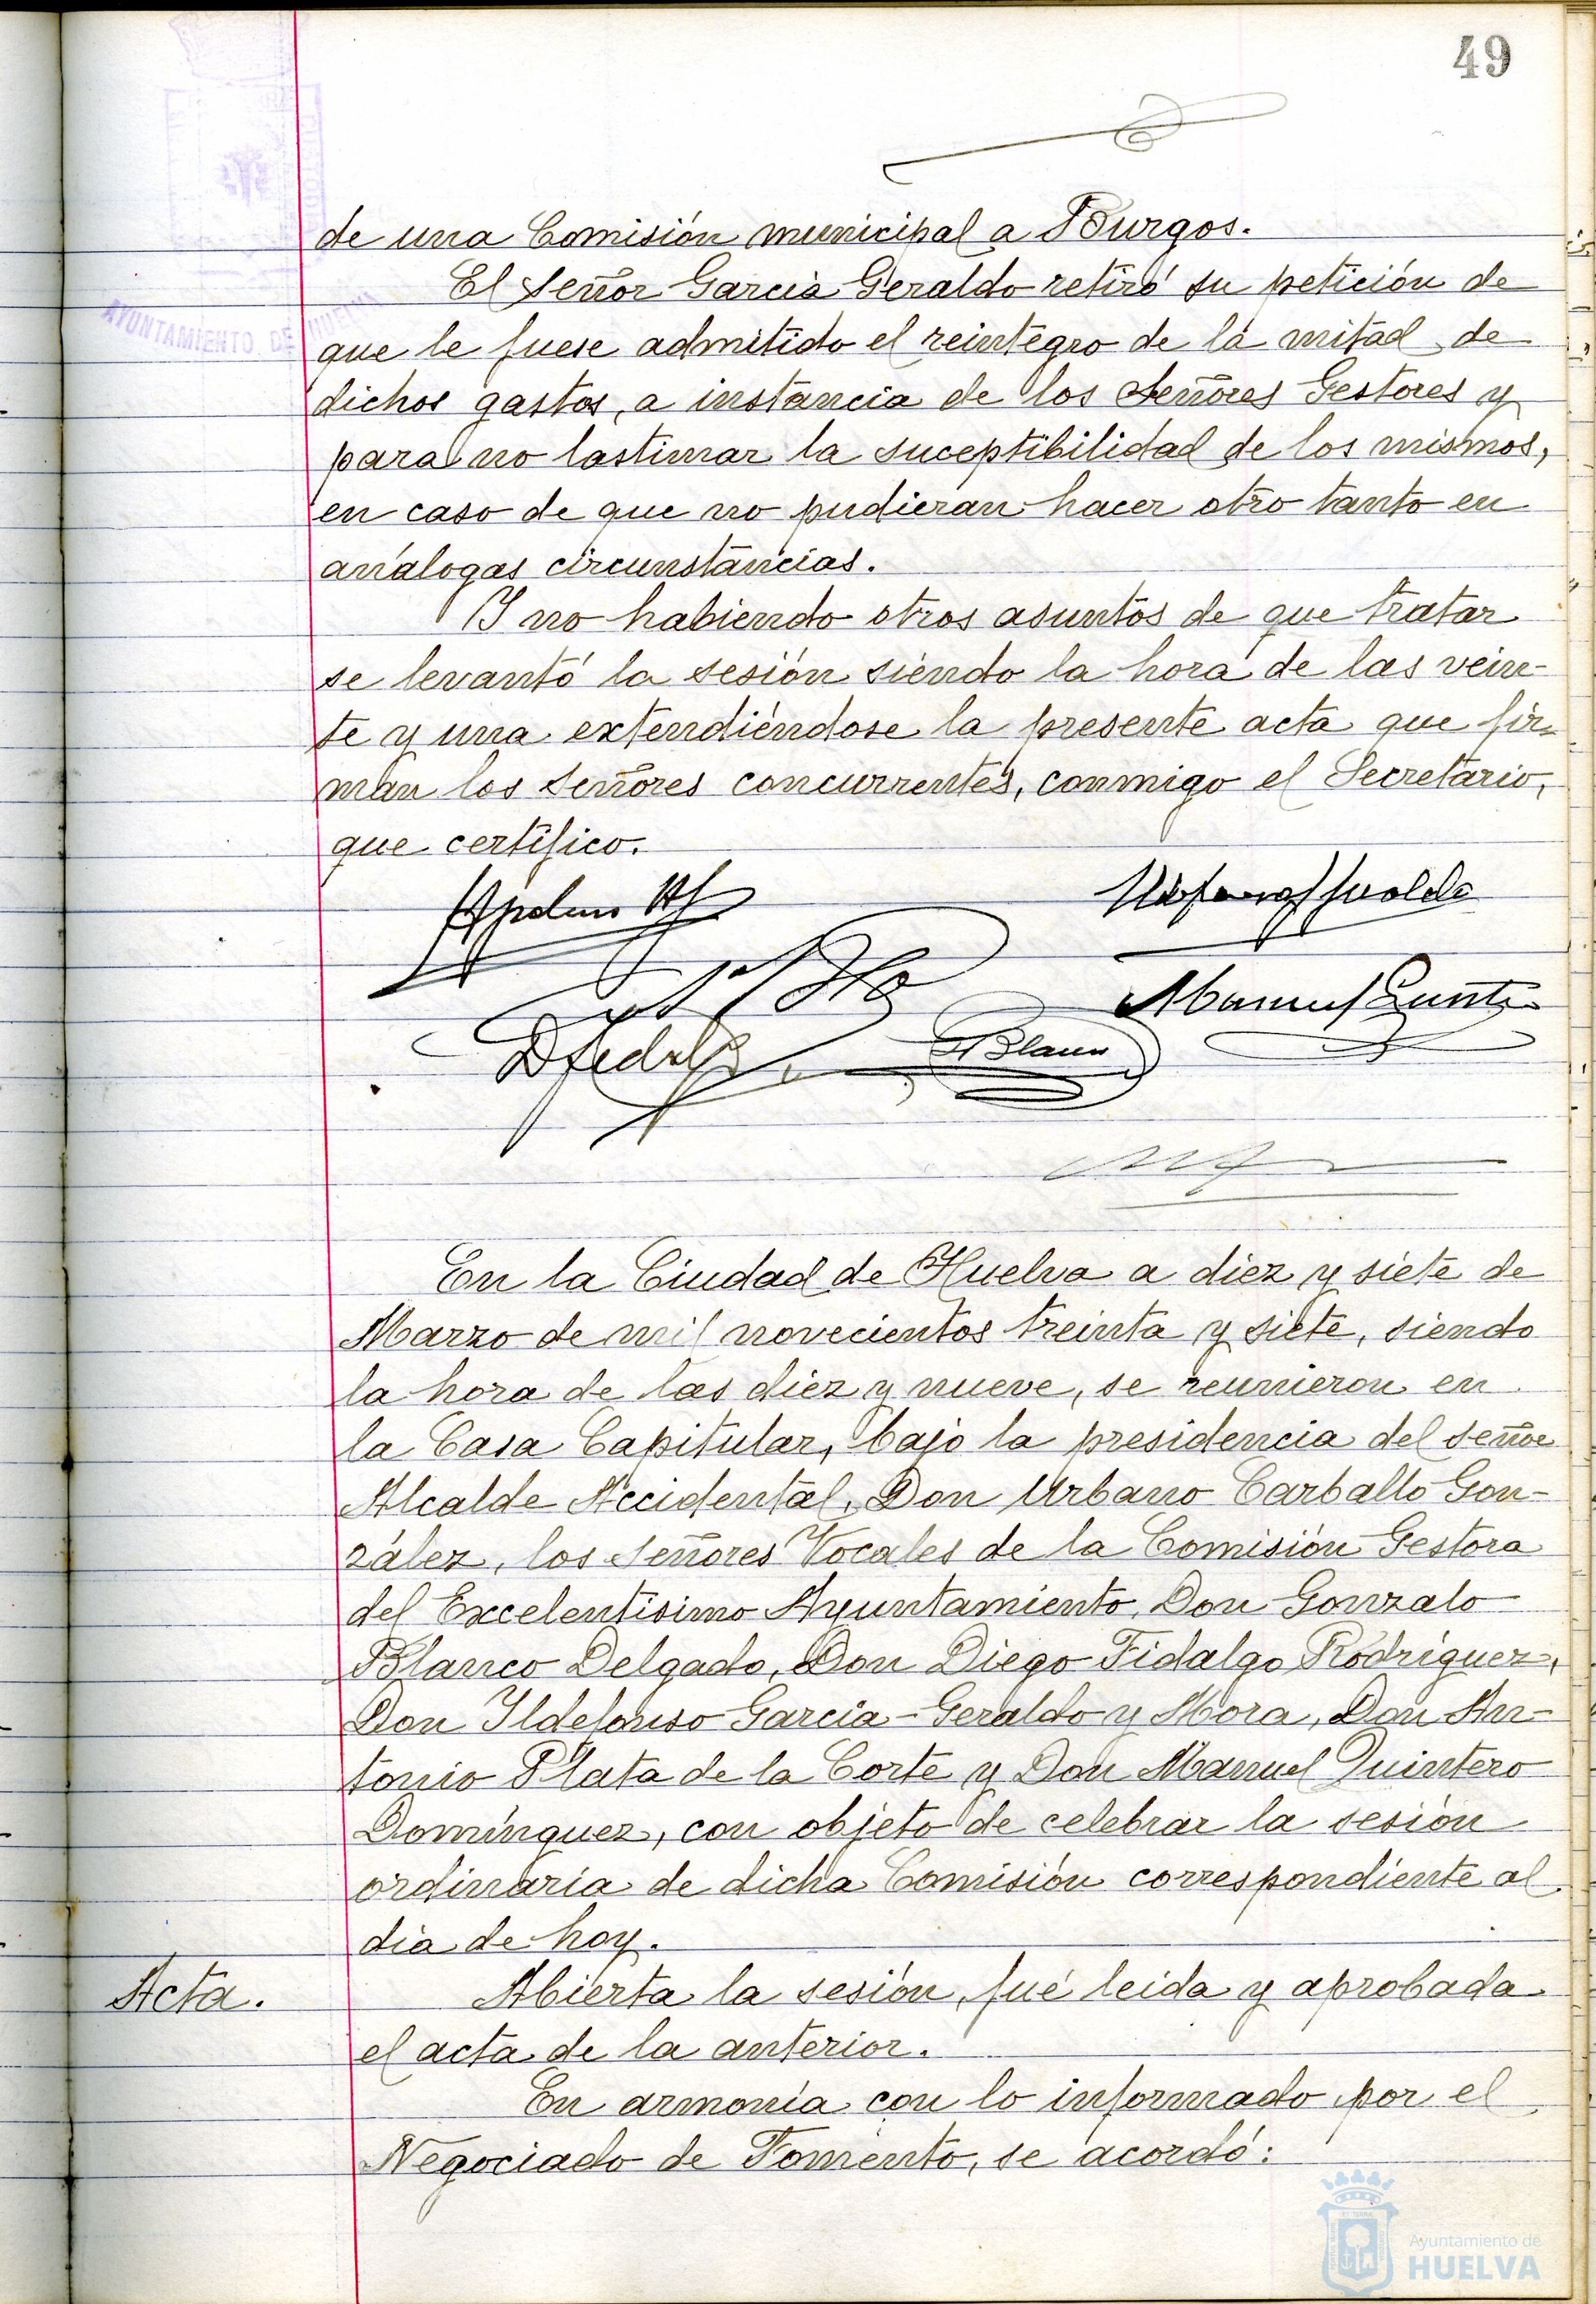 49
de una Comisión municipal a Burgos.
El Señor García Geraldo retiró su petición de
AYUNTAMIENTO DE HUELVA
que le fuese admitido el reintegro de la mitad de
dichos gastos, a instancia de los Señores Gestores y
para no lastimar la suceptibilidad de los mismos,
en caso de que no pudieran hacer otro tanto en
análogas circunstancias.
Y no habiendo otros asuntos de que tratar
se levantó la sesión siendo la hora de las vein-
te y una extendiéndose la presente acta que fir-
man los Señores concurrentes, conmigo el Secretario,
que certifico.
Manuel Quintero
Blanco
En la Ciudad de Huelva a diez y siete de
Marzo de mil novecientos treinta y siete, siendo
la hora de las diez y nueve, se reunieron en
la Casa Capitular, bajo la presidencia del señor
Alcalde Accidental, Don Urbano Carballo Gon-
zález, los Señores Vocales de la Comisión Gestora
del Excelentísimo Ayuntamiento, Don Gonzalo
Blanco Delgado, Don Diego Fidalgo Rodríguez,
Don Ildefonso García-Geraldo y Mora, Don An-
tonio Plata de la Corte y Don Manuel Quintero
Domínguez, con objeto de celebrar la sesión
ordinaria de dicha Comisión correspondiente al
dia de hoy.
Acta.
Abierta la sesión, fué leida y aprobada
el acta de la anterior.
En armonía con lo informado por el
Negociado de Fomento, se acordó:
Ayuntamiento de
HUELVA